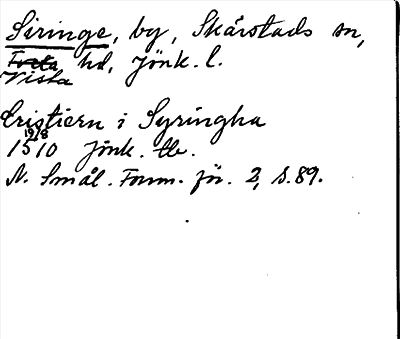 Siringe, by, Skärstads sn,
Vista hd, Jönk. l.
Cristiern i Syringha
19/8
1510 Jönk. tb.
N. Smål. Forn. för. 2, s. 89.